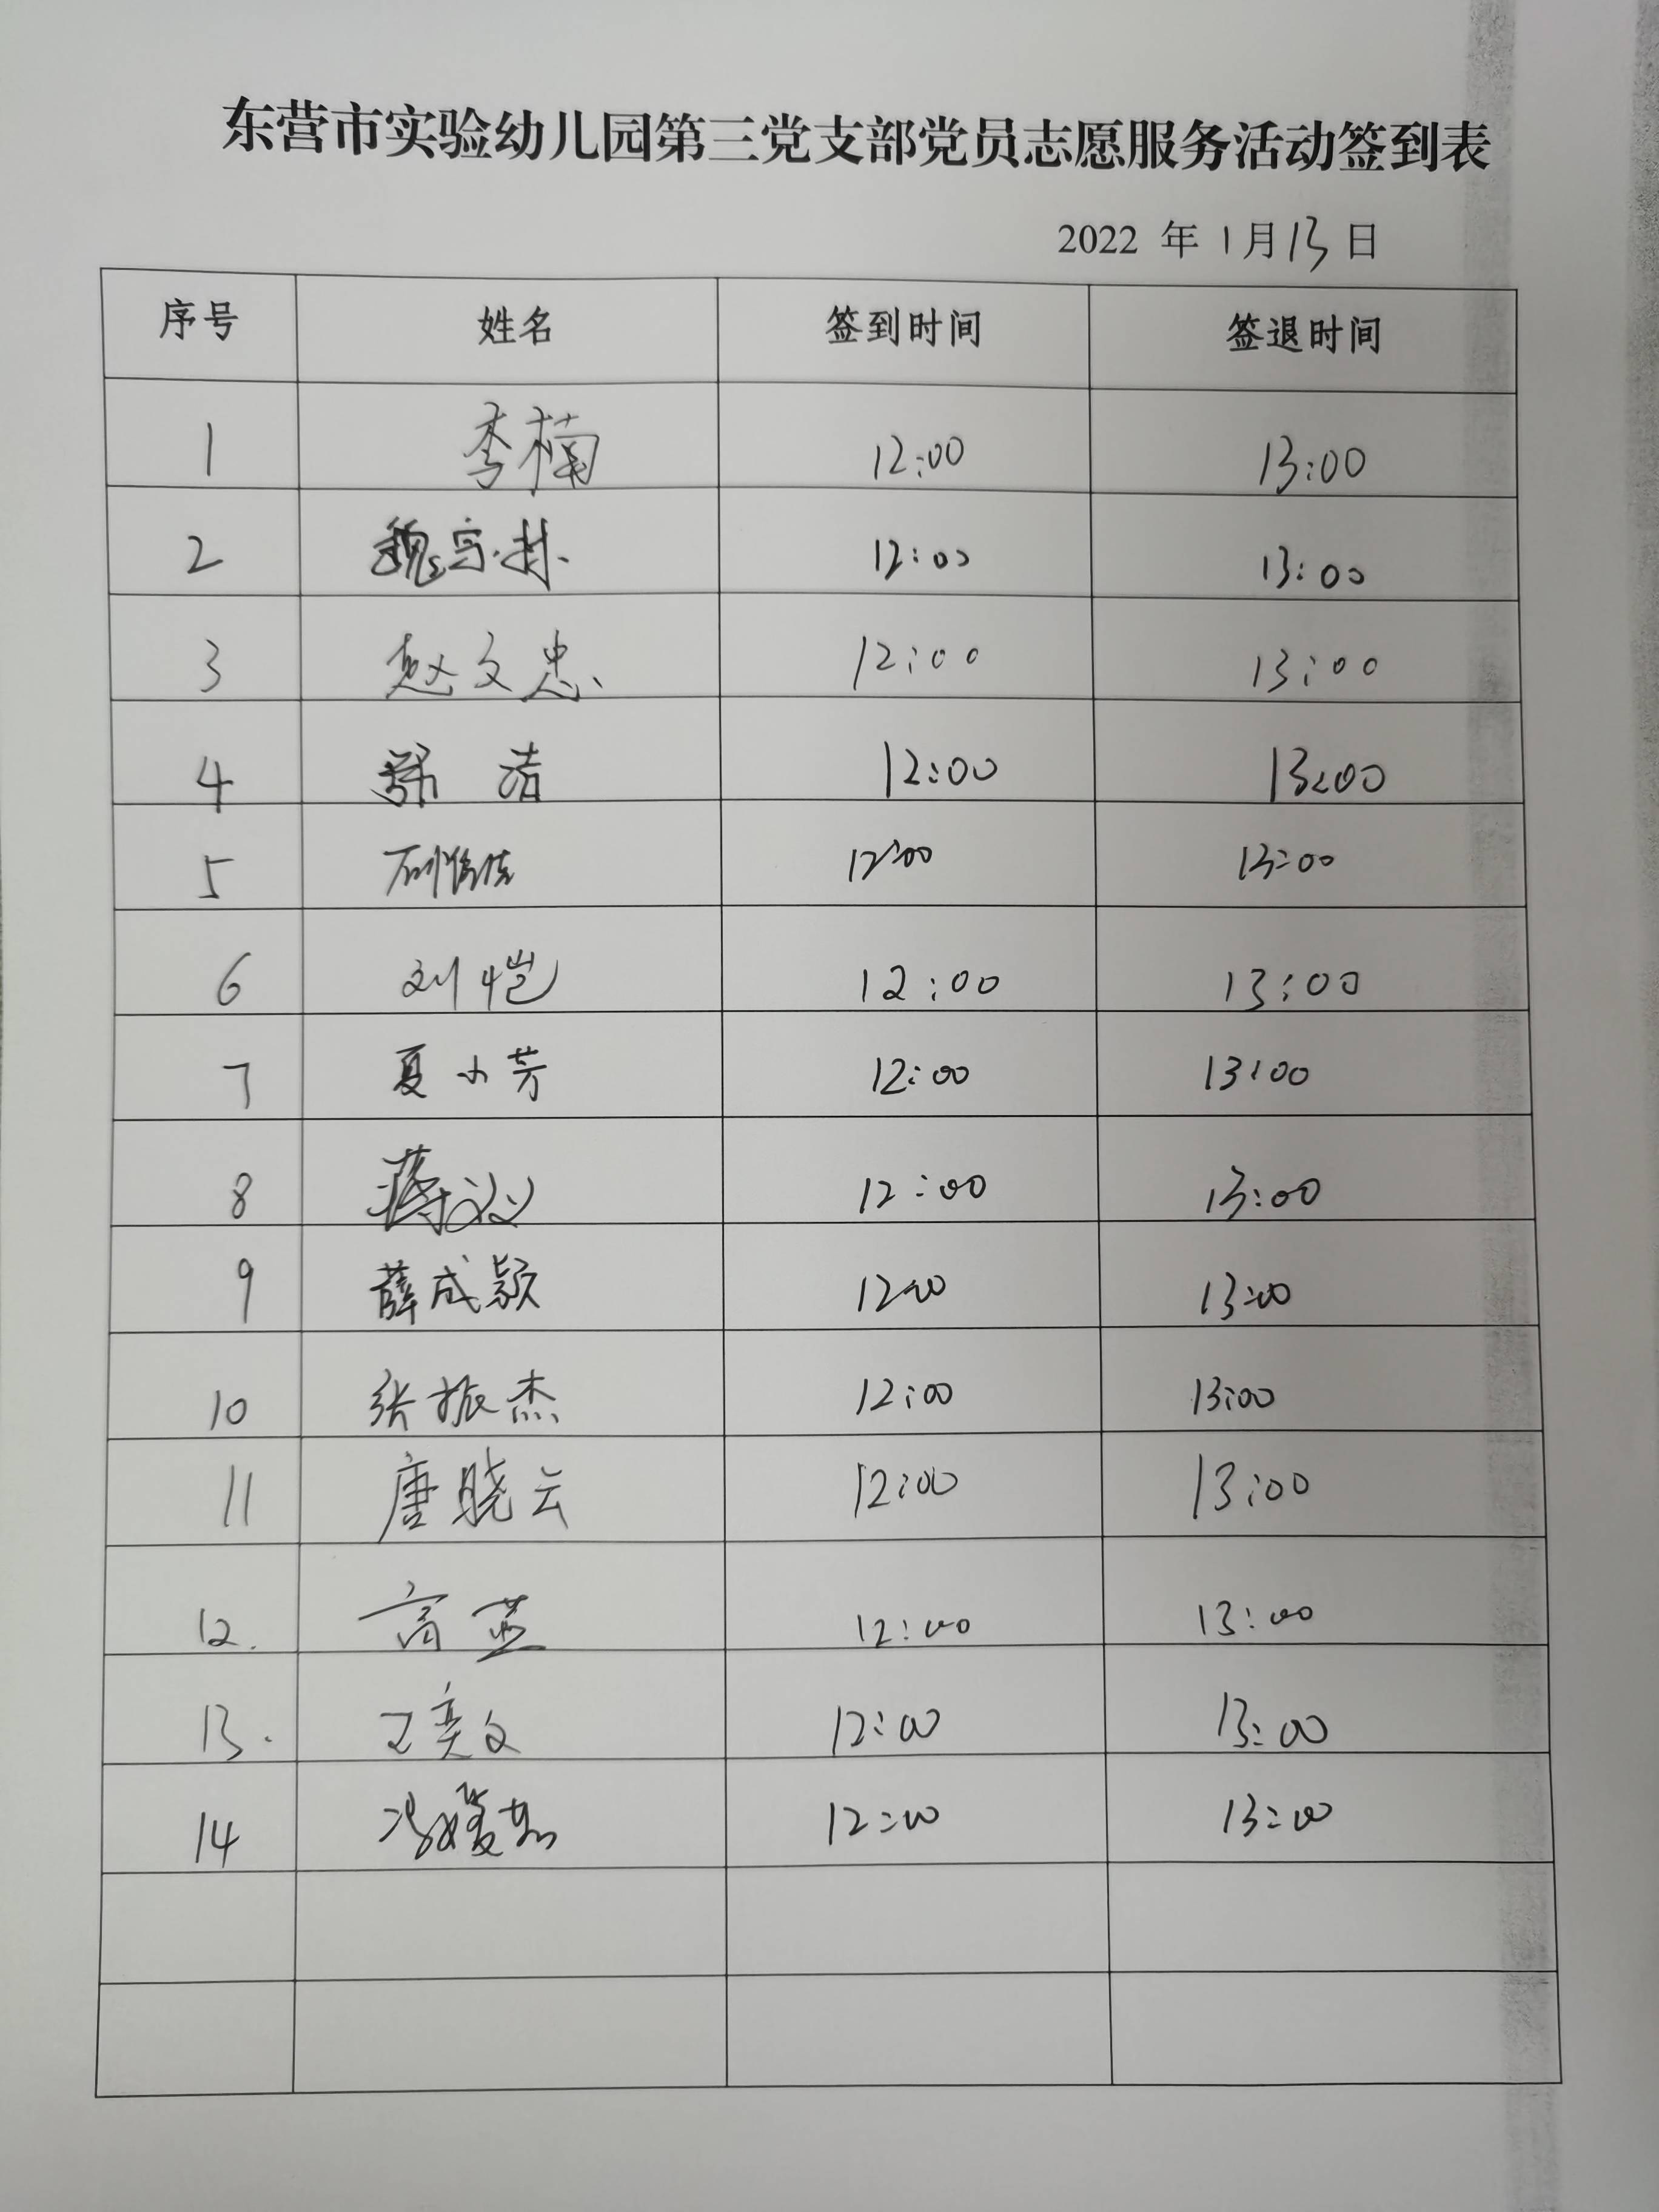 东营市实验幼儿园第三党支部党员志愿服务活动签到表
2022 年 1 月 13 日
序号 姓名 签到时间 签退时间
1 李楠 12:00 13:00
2 12:00 13:00
3 赵文忠 12:00 13:00
4 12:00 13:00
5 12:00 13:00
6 刘恺 12:00 13:00
7 夏小芳 12:00 13:00
8 蒋汉 12:00 13:00
9 薛成颖 12:00 13:00
10 张振杰 12:00 13:00
11 唐晓云 12:00 13:00
12. 高蓝 12:00 13:00
13. 王奕文 12:00 13:00
14 冯媛茹 12:00 13:00